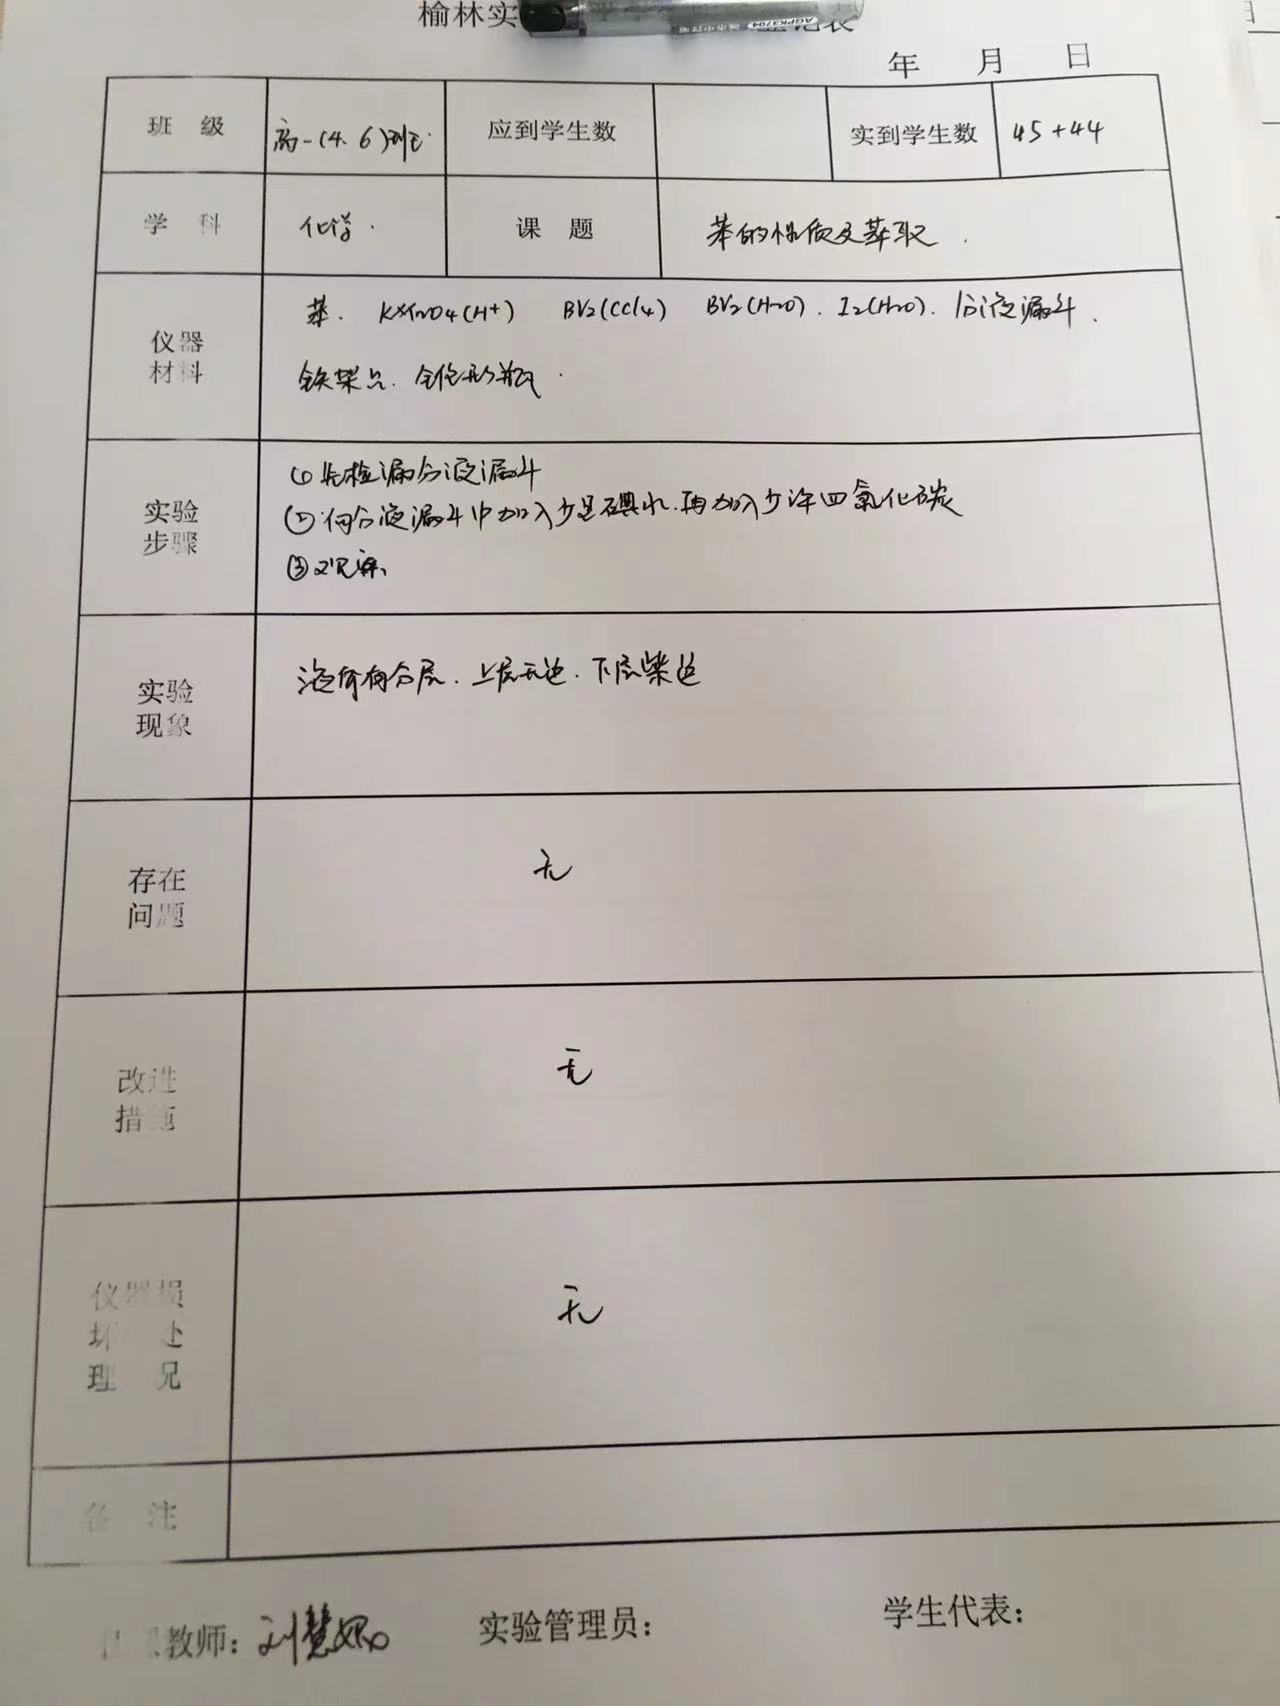 榆林实
登记表
AGPK3704
年 月 日
班 级 高一(4.6)班 应到学生数 实到学生数 45+44
学 科 化学. 课 题 苯的性质及萃取.
仪器材料 苯. KMnO4(H+) Br2(CCl4) Br2(H2O). I2(H2O). 分液漏斗.
铁架台. 锥形瓶.
实验步骤 ①先检漏分液漏斗
②向分液漏斗中加入少量碘水.再加入少许四氯化碳
③观察.
实验现象 液体有分层.上层无色.下层紫色
存在问题 无
改进措施 无
仪器损坏 处理 况 无
备 注
教师: 刘慧 实验管理员: 学生代表: